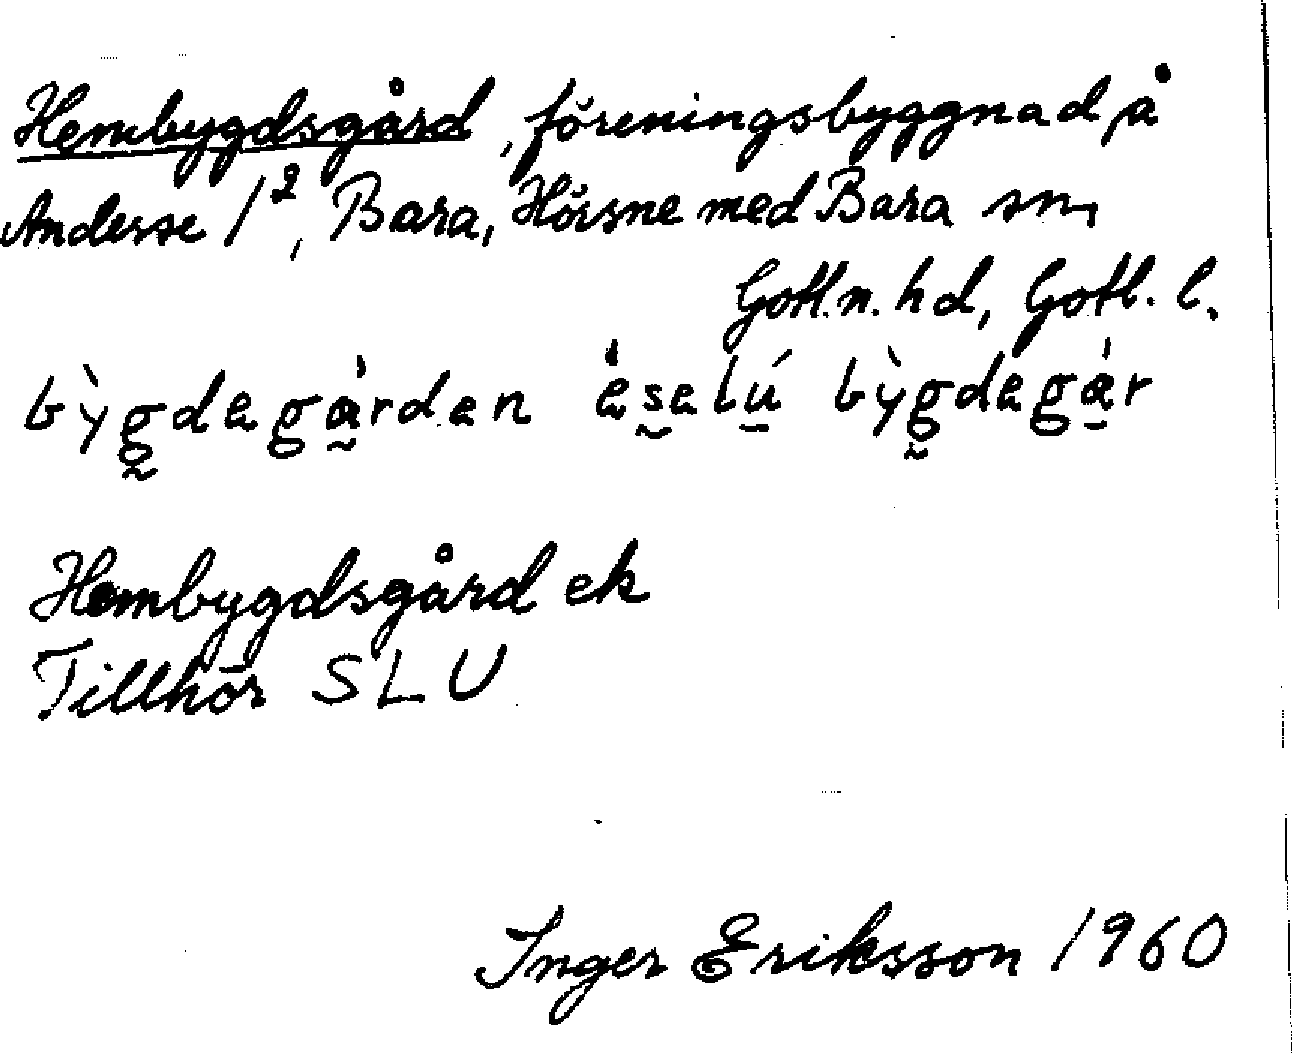 Hembygdsgård, föreningsbyggnad, å
Anderse 1², Bara, Hörsne med Bara sn,
Gotl.n. hd, Gotl. l.
bỳgdegården éselú bỳgdegår
Hembygdsgård ek
Tillhör SLU
Inger Eriksson 1960